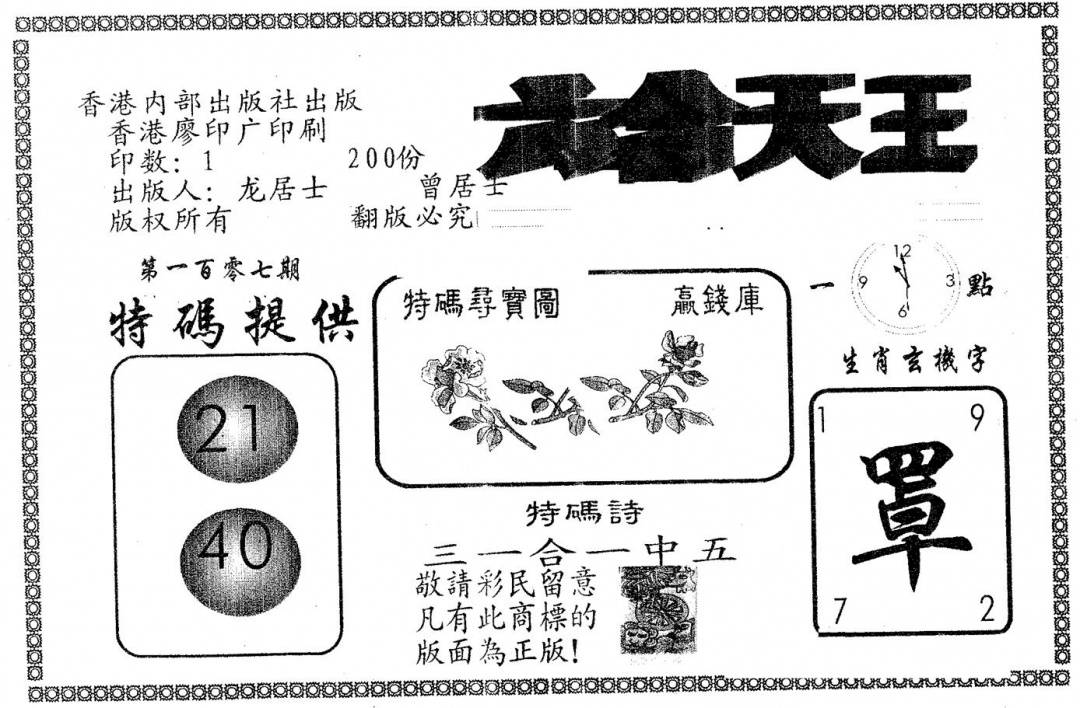 六合天王
香港内部出版社出版
香港廖印广印刷
印数: 1 200份
出版人: 龙居士 曾居士
版权所有 翻版必究
第一百零七期
特碼提供
21
40
特碼尋寶圖 贏錢庫
一 點
12
9 3
6
生肖玄機字
1 9
罩
7 2
特碼詩
三一合一中五
敬請彩民留意
凡有此商標的
版面為正版!